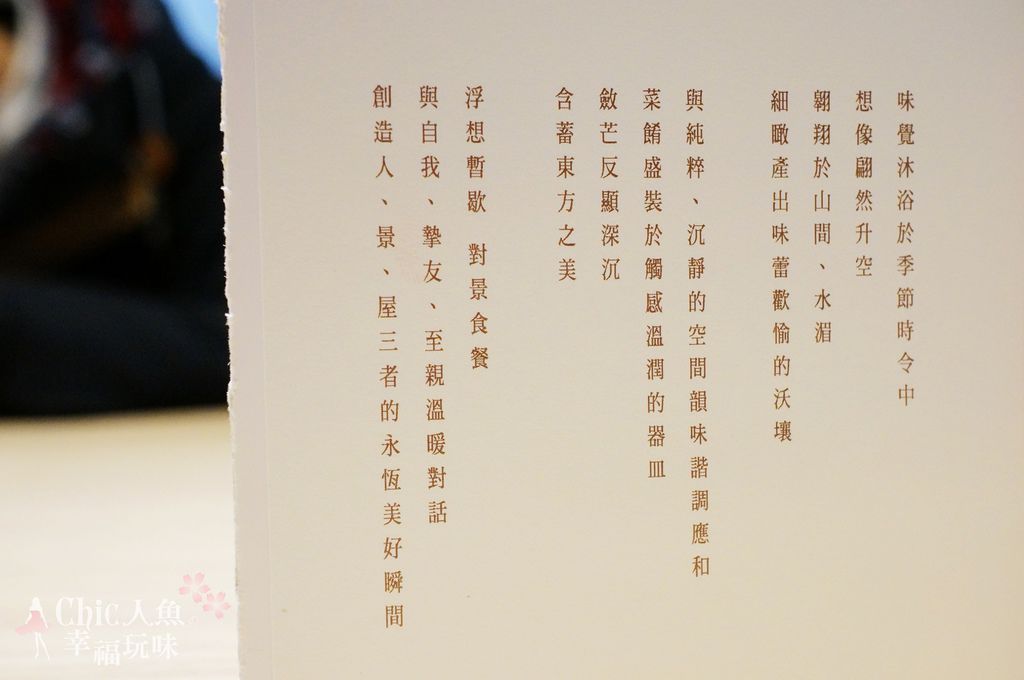 味覺沐浴於季節時令中
想像翩然升空
翱翔於山間、水湄
細瞰產出味蕾歡愉的沃壤
與純粹、沉靜的空間韻味諧調應和
菜餚盛裝於觸感溫潤的器皿
斂芒反顯深沉
含蓄東方之美
浮想暫歇 對景食餐
與自我、摯友、至親溫暖對話
創造人、景、屋三者的永恆美好瞬間
Chic人魚
幸福玩味